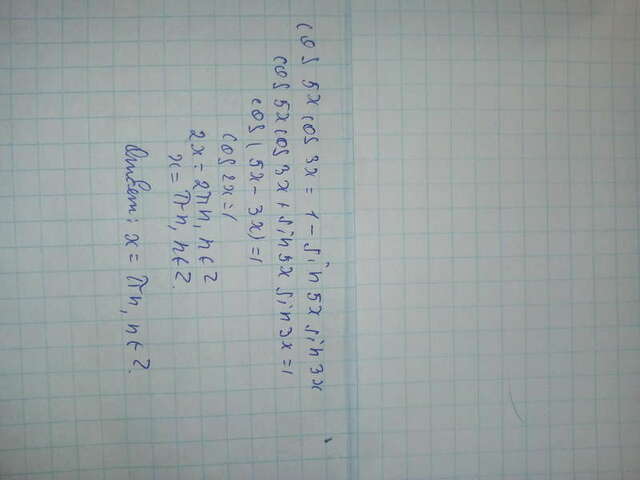 cos 5x cos 3x = 1 - sin 5x sin 3x
cos 5x cos 3x + sin 5x sin 3x = 1
cos(5x - 3x) = 1
cos 2x = 1
2x = 2πn, n ∈ Z
x = πn, n ∈ Z.
Ответ: x = πn, n ∈ Z.